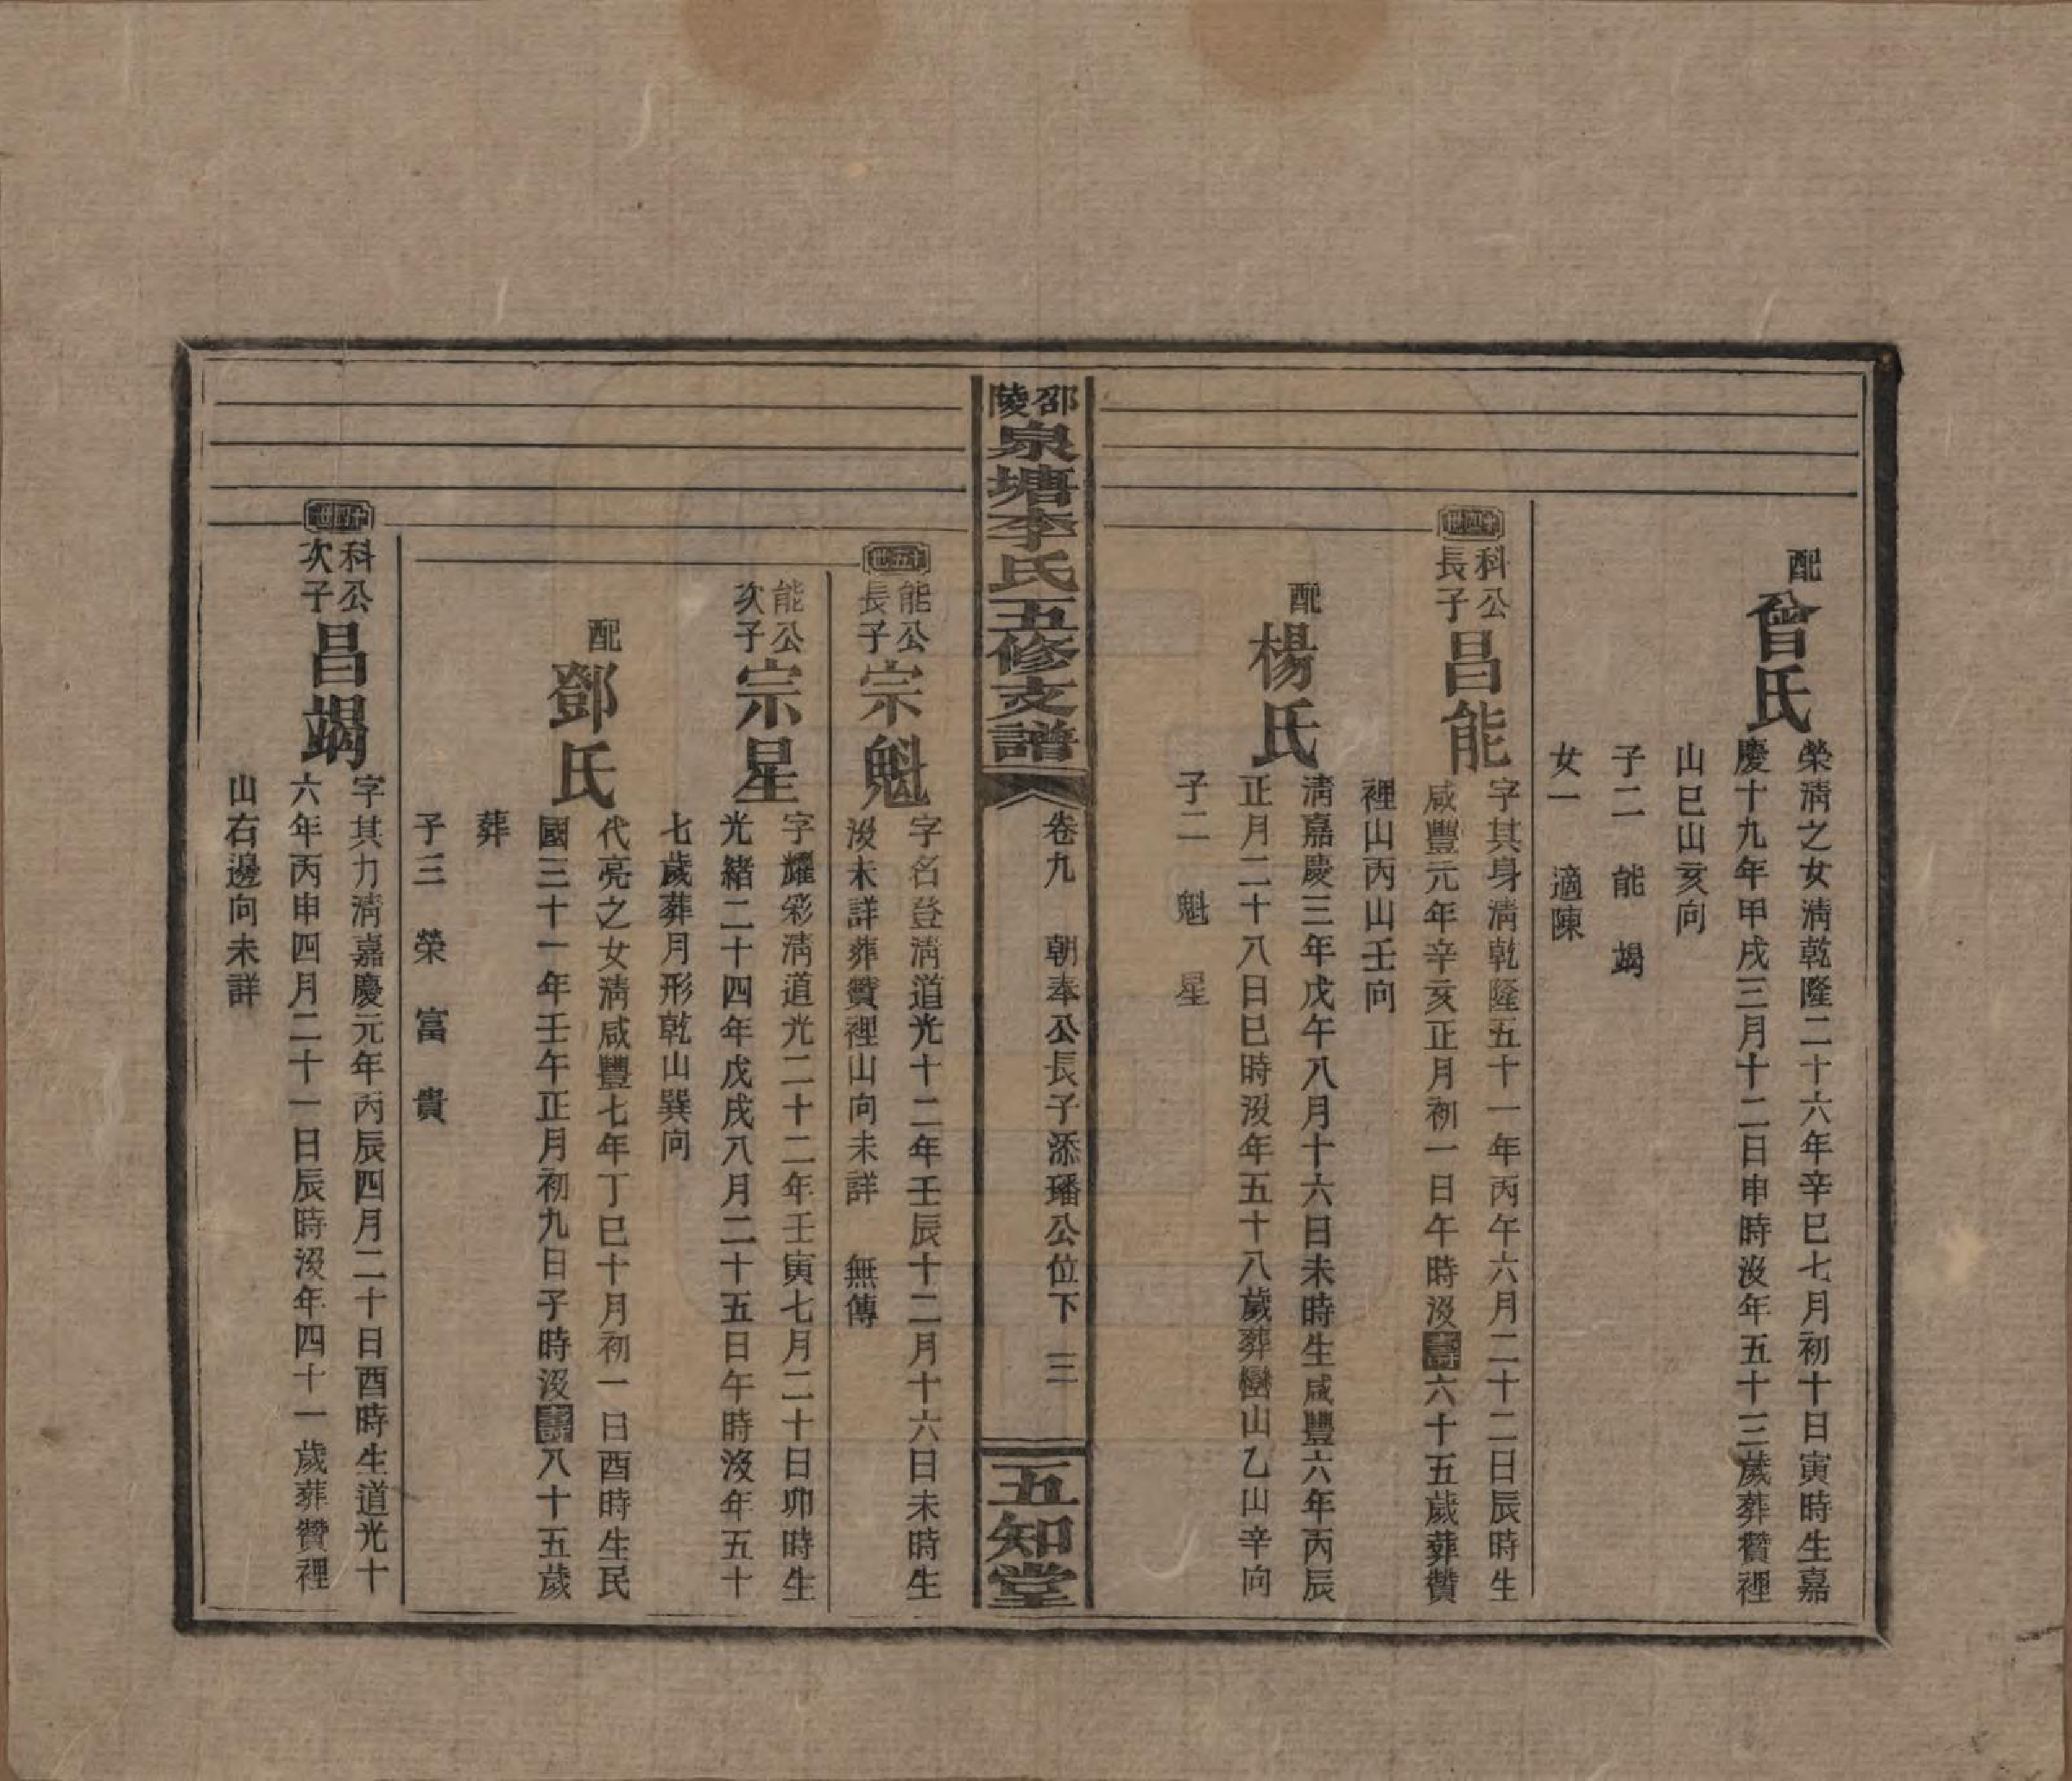 配
曾氏
榮淸之女淸乾隆二十六年辛巳七月初十日寅時生嘉
慶十九年甲戌三月十二日申時沒年五十三歲葬贊裡
山巳山亥向
子二 能 竭
女一 適陳
十四世
科公長子
昌能
字其身淸乾隆五十一年丙午六月二十二日辰時生
咸豐元年辛亥正月初一日午時沒壽六十五歲葬贊
裡山丙山壬向
配
楊氏
淸嘉慶三年戊午八月十六日未時生咸豐六年丙辰
正月二十八日巳時沒年五十八歲葬巒山乙山辛向
子二 魁 星
邵陵泉塘李氏五修支譜
卷九 朝奉公長子添璠公位下 三
五知堂
十五世
能公長子
宗魁
字名登淸道光十二年壬辰十二月十六日未時生
沒未詳葬贊裡山向未詳 無傳
能公次子
宗星
字耀彩淸道光二十二年壬寅七月二十日卯時生
光緒二十四年戊戌八月二十五日午時沒年五十
七歲葬月形乾山巽向
配
鄧氏
代亮之女淸咸豐七年丁巳十月初一日酉時生民
國三十一年壬午正月初九日子時沒壽八十五歲
葬
子三 榮 富 貴
十四世
科公次子
昌竭
字其力淸嘉慶元年丙辰四月二十日酉時生道光十
六年丙申四月二十一日辰時沒年四十一歲葬贊裡
山右邊向未詳